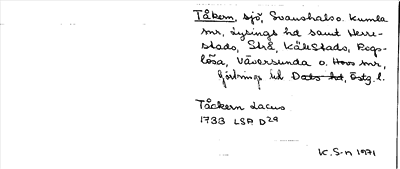 Tåkern, sjö, Svanshals o. Kumla
snr, Lysings hd samt Herre-
stads, Strå, Källstads, Rogs-
lösa, Väversunda o. Hovs snr,
hd, Östg. l.
Tåckern Lacus
1733 LSA D29
K. S-n 1971